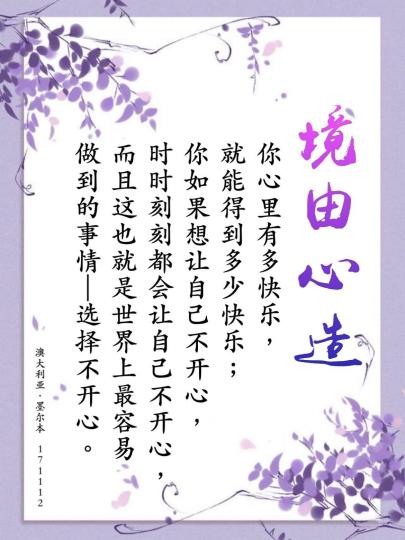 境由心造
你心里有多快乐，
就能得到多少快乐；
你如果想让自己不开心，
时时刻刻都会让自己不开心，
而且这也就是世界上最容易
做到的事情—选择不开心。
澳大利亚·墨尔本 171112